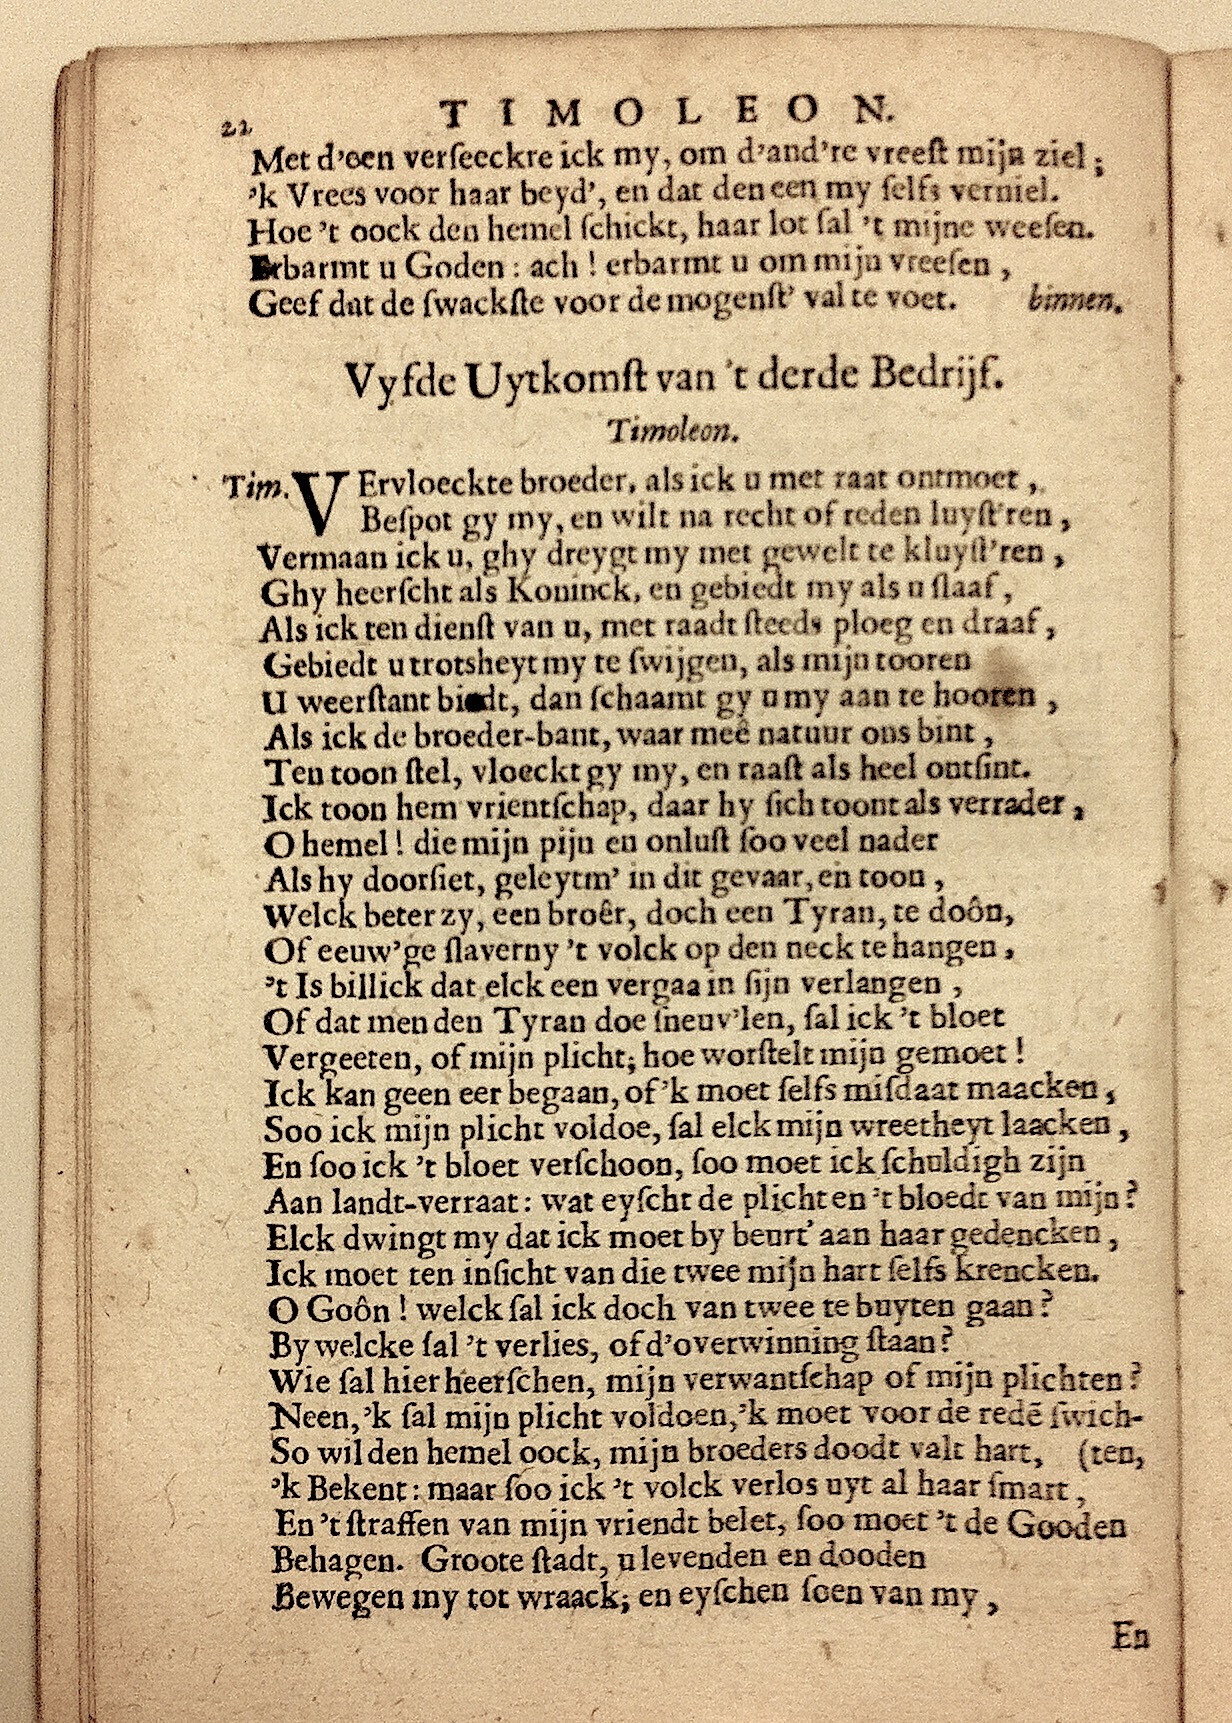 22 TIMOLEON.
Met d'een verſeeckre ick my, om d'and're vreeſt mijn ziel;
'k Vrees voor haar beyd', en dat den een my ſelfs verniel.
Hoe 't oock den hemel ſchickt, haar lot ſal 't mijne weeſen.
Erbarmt u Goden: ach! erbarmt u om mijn vreeſen,
Geef dat de ſwackſte voor de mogenſt' val te voet. binnen.
Vyfde Uytkomſt van 't derde Bedrijf.
Timoleon.
Tim. VErvloeckte broeder, als ick u met raat ontmoet,
Beſpot gy my, en wilt na recht of reden luyſt'ren,
Vermaan ick u, ghy dreygt my met gewelt te kluyſt'ren,
Ghy heerſcht als Koninck, en gebiedt my als u ſlaaf,
Als ick ten dienſt van u, met raadt ſteeds ploeg en draaf,
Gebiedt u trotsheyt my te ſwijgen, als mijn tooren
U weerſtant biedt, dan ſchaamt gy u my aan te hooren,
Als ick de broeder-bant, waar meê natuur ons bint,
Ten toon ſtel, vloeckt gy my, en raaſt als heel ontſint.
Ick toon hem vrientſchap, daar hy ſich toont als verrader,
O hemel! die mijn pijn en onluſt ſoo veel nader
Als hy doorſiet, geleytm' in dit gevaar, en toon,
Welck beter zy, een broêr, doch een Tyran, te doôn,
Of eeuw'ge ſlaverny 't volck op den neck te hangen,
't Is billick dat elck een vergaa in ſijn verlangen,
Of dat men den Tyran doe ſneuv'len, ſal ick 't bloet
Vergeeten, of mijn plicht; hoe worſtelt mijn gemoet!
Ick kan geen eer begaan, of 'k moet ſelfs miſdaat maacken,
Soo ick mijn plicht voldoe, ſal elck mijn wreetheyt laacken,
En ſoo ick 't bloet verſchoon, ſoo moet ick ſchuldigh zijn
Aan landt-verraat: wat eyſcht de plicht en 't bloedt van mijn?
Elck dwingt my dat ick moet by beurt' aan haar gedencken,
Ick moet ten inſicht van die twee mijn hart ſelfs krencken.
O Goôn! welck ſal ick doch van twee te buyten gaan?
By welcke ſal 't verlies, of d'overwinning ſtaan?
Wie ſal hier heerſchen, mijn verwantſchap of mijn plichten?
Neen, 'k ſal mijn plicht voldoen, 'k moet voor de redē ſwich-
So wil den hemel oock, mijn broeders doodt valt hart, (ten,
'k Bekent: maar ſoo ick 't volck verlos uyt al haar ſmart,
En 't ſtraffen van mijn vriendt belet, ſoo moet 't de Gooden
Behagen. Groote ſtadt, u levenden en dooden
Bewegen my tot wraack; en eyſchen ſoen van my,
En